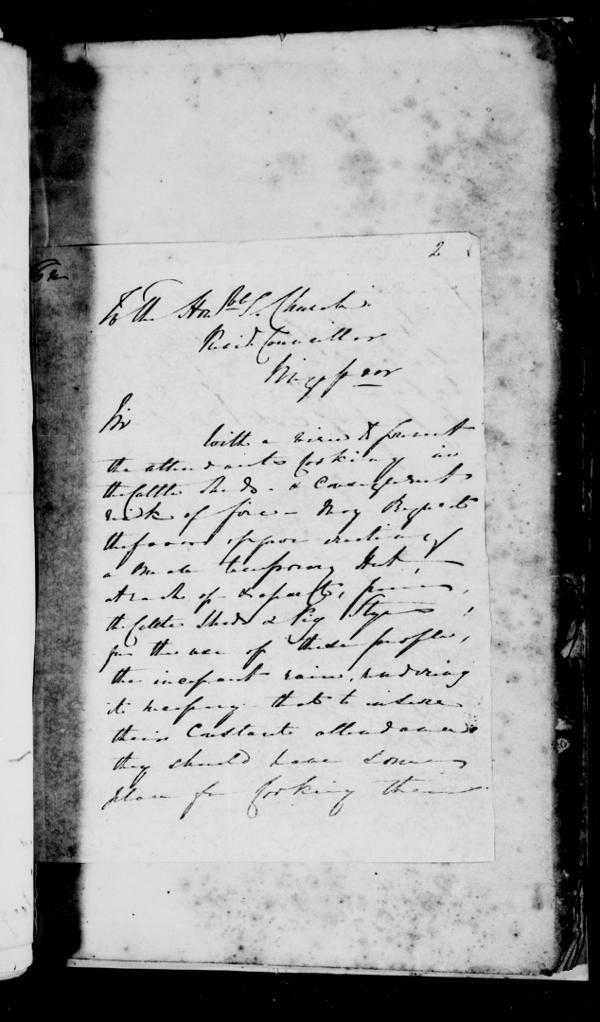 2
To The Honble S. Church
Resid. Councillor
Singapoor
Sir
With a view to prevent
the attendants Cooking in
the Cattle Sheds & Consequent
risk of fire – May Request
the favor of your erection of
a temporary Hut,
at each of
the Cattle Sheds & Pig Styes
for the use of these people,
the incessant rains, rendering
it necessary that to insure
their Constant attendance
they should have some
place for Cooking their